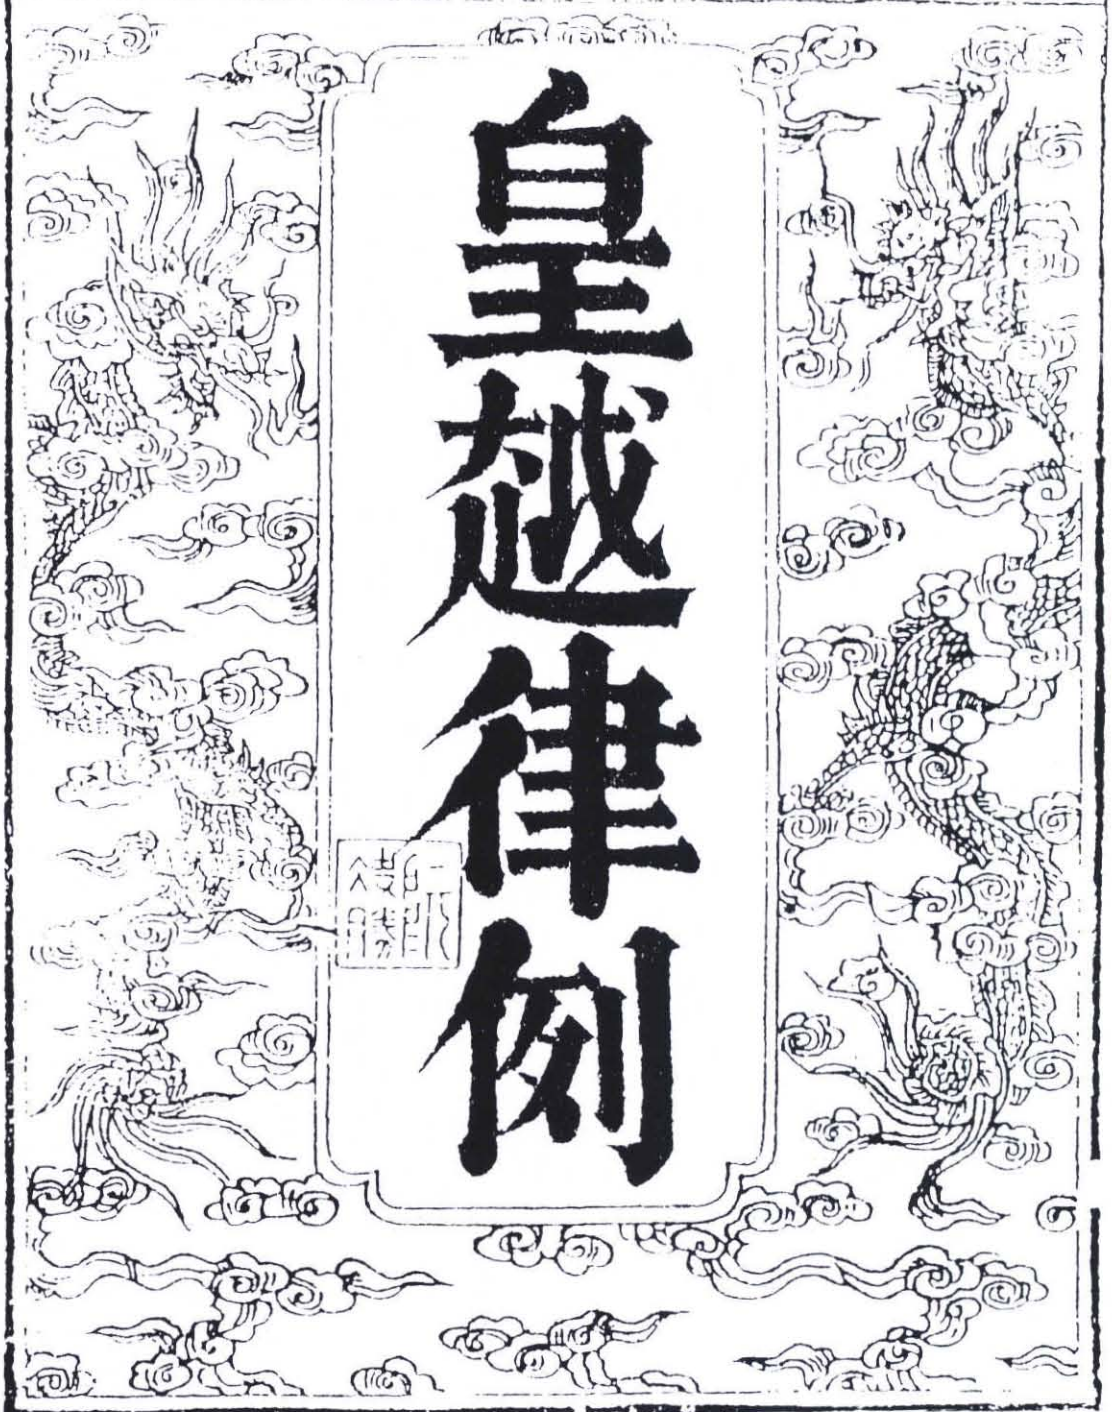 皇越律例